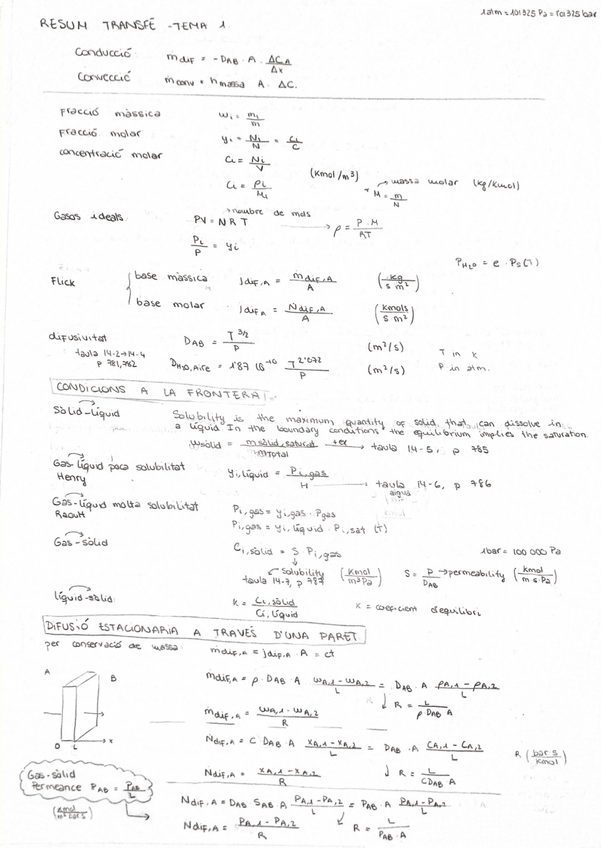 1 atm = 101325 Pa = 1'01325 bar
RESUM TRANSFÉ - TEMA 1
Conducció ṁdif = -DAB · A · ΔCA / Δx
Convecció ṁconv = hmassa A · ΔC.
Fracció màssica wi = mi / m
Fracció molar yi = Ni / N = Ci / C
concentració molar Ci = Ni / V (Kmol/m³)
Ci = ρi / Mi → massa molar (kg/kmol) M = m / N
Gasos ideals PV = NRT → nombre de mols → ρ = P · M / RT
Pi / P = yi
PH2O = e · Ps(T)
Flick { base màssica jdif,A = ṁdif,A / A (kg / s m²)
base molar jdif,A = Ṅdif,A / A (kmols / s m²)
difusivitat DAB = T^3/2 / P (m²/s) T in K
taula 14-2→14-4 p 781,782 DH2O,Aire = 1'87 10^-10 T^2'072 / P (m²/s) P in atm.
CONDICIONS A LA FRONTERA:
Sòlid-líquid Solubility is the maximum quantity of solid that can dissolve in
a líquid In the boundary conditions the equilibrium implies the saturation.
wsòlid = msòlid,saturat / mTotal → taula 14-5, p 785
Gas-líquid poca solubilitat yi,líquid = Pi,gas / H → taula 14-6, p 786
Henry aigua
Gas-líquid molta solubilitat Pi,gas = yi,gas · Pgas
Raoult Pi,gas = yi,líquid · Pi,sat (T)
Gas-sòlid Ci,sòlid = S Pi,gas 1bar = 100 000 Pa
solubility (kmol / m³ Pa) S = P / DAB → permeability (kmol / m s Pa)
taula 14-7, p 787
líquid-sòlid K = Ci,sòlid / Ci,líquid K = coeficient d'equilibri
DIFUSIÓ ESTACIONARIA A TRAVÉS D'UNA PARET
per conservació de massa ṁdif,A = jdif,A · A = ct
A B
ṁdif,A = ρ · DAB · A wA,1 - wA,2 / L = DAB · A ρA,1 - ρA,2 / L
ṁdif,A = wA,1 - wA,2 / R ↓ R = L / ρ DAB A
0 L x
Ṅdif,A = C DAB A xA,1 - xA,2 / L = DAB · A CA,1 - CA,2 / L R (bar s / kmol)
Ṅdif,A = xA,1 - xA,2 / R ↓ R = L / C DAB A
Gas-sòlid
Permeance PAB = PAB / L
(kmol / m² bar s)
Ṅdif,A = DAB SAB A PA,1 - PA,2 / L = PAB A PA,1 - PA,2 / L
Ṅdif,A = PA,1 - PA,2 / R R = L / PAB · A